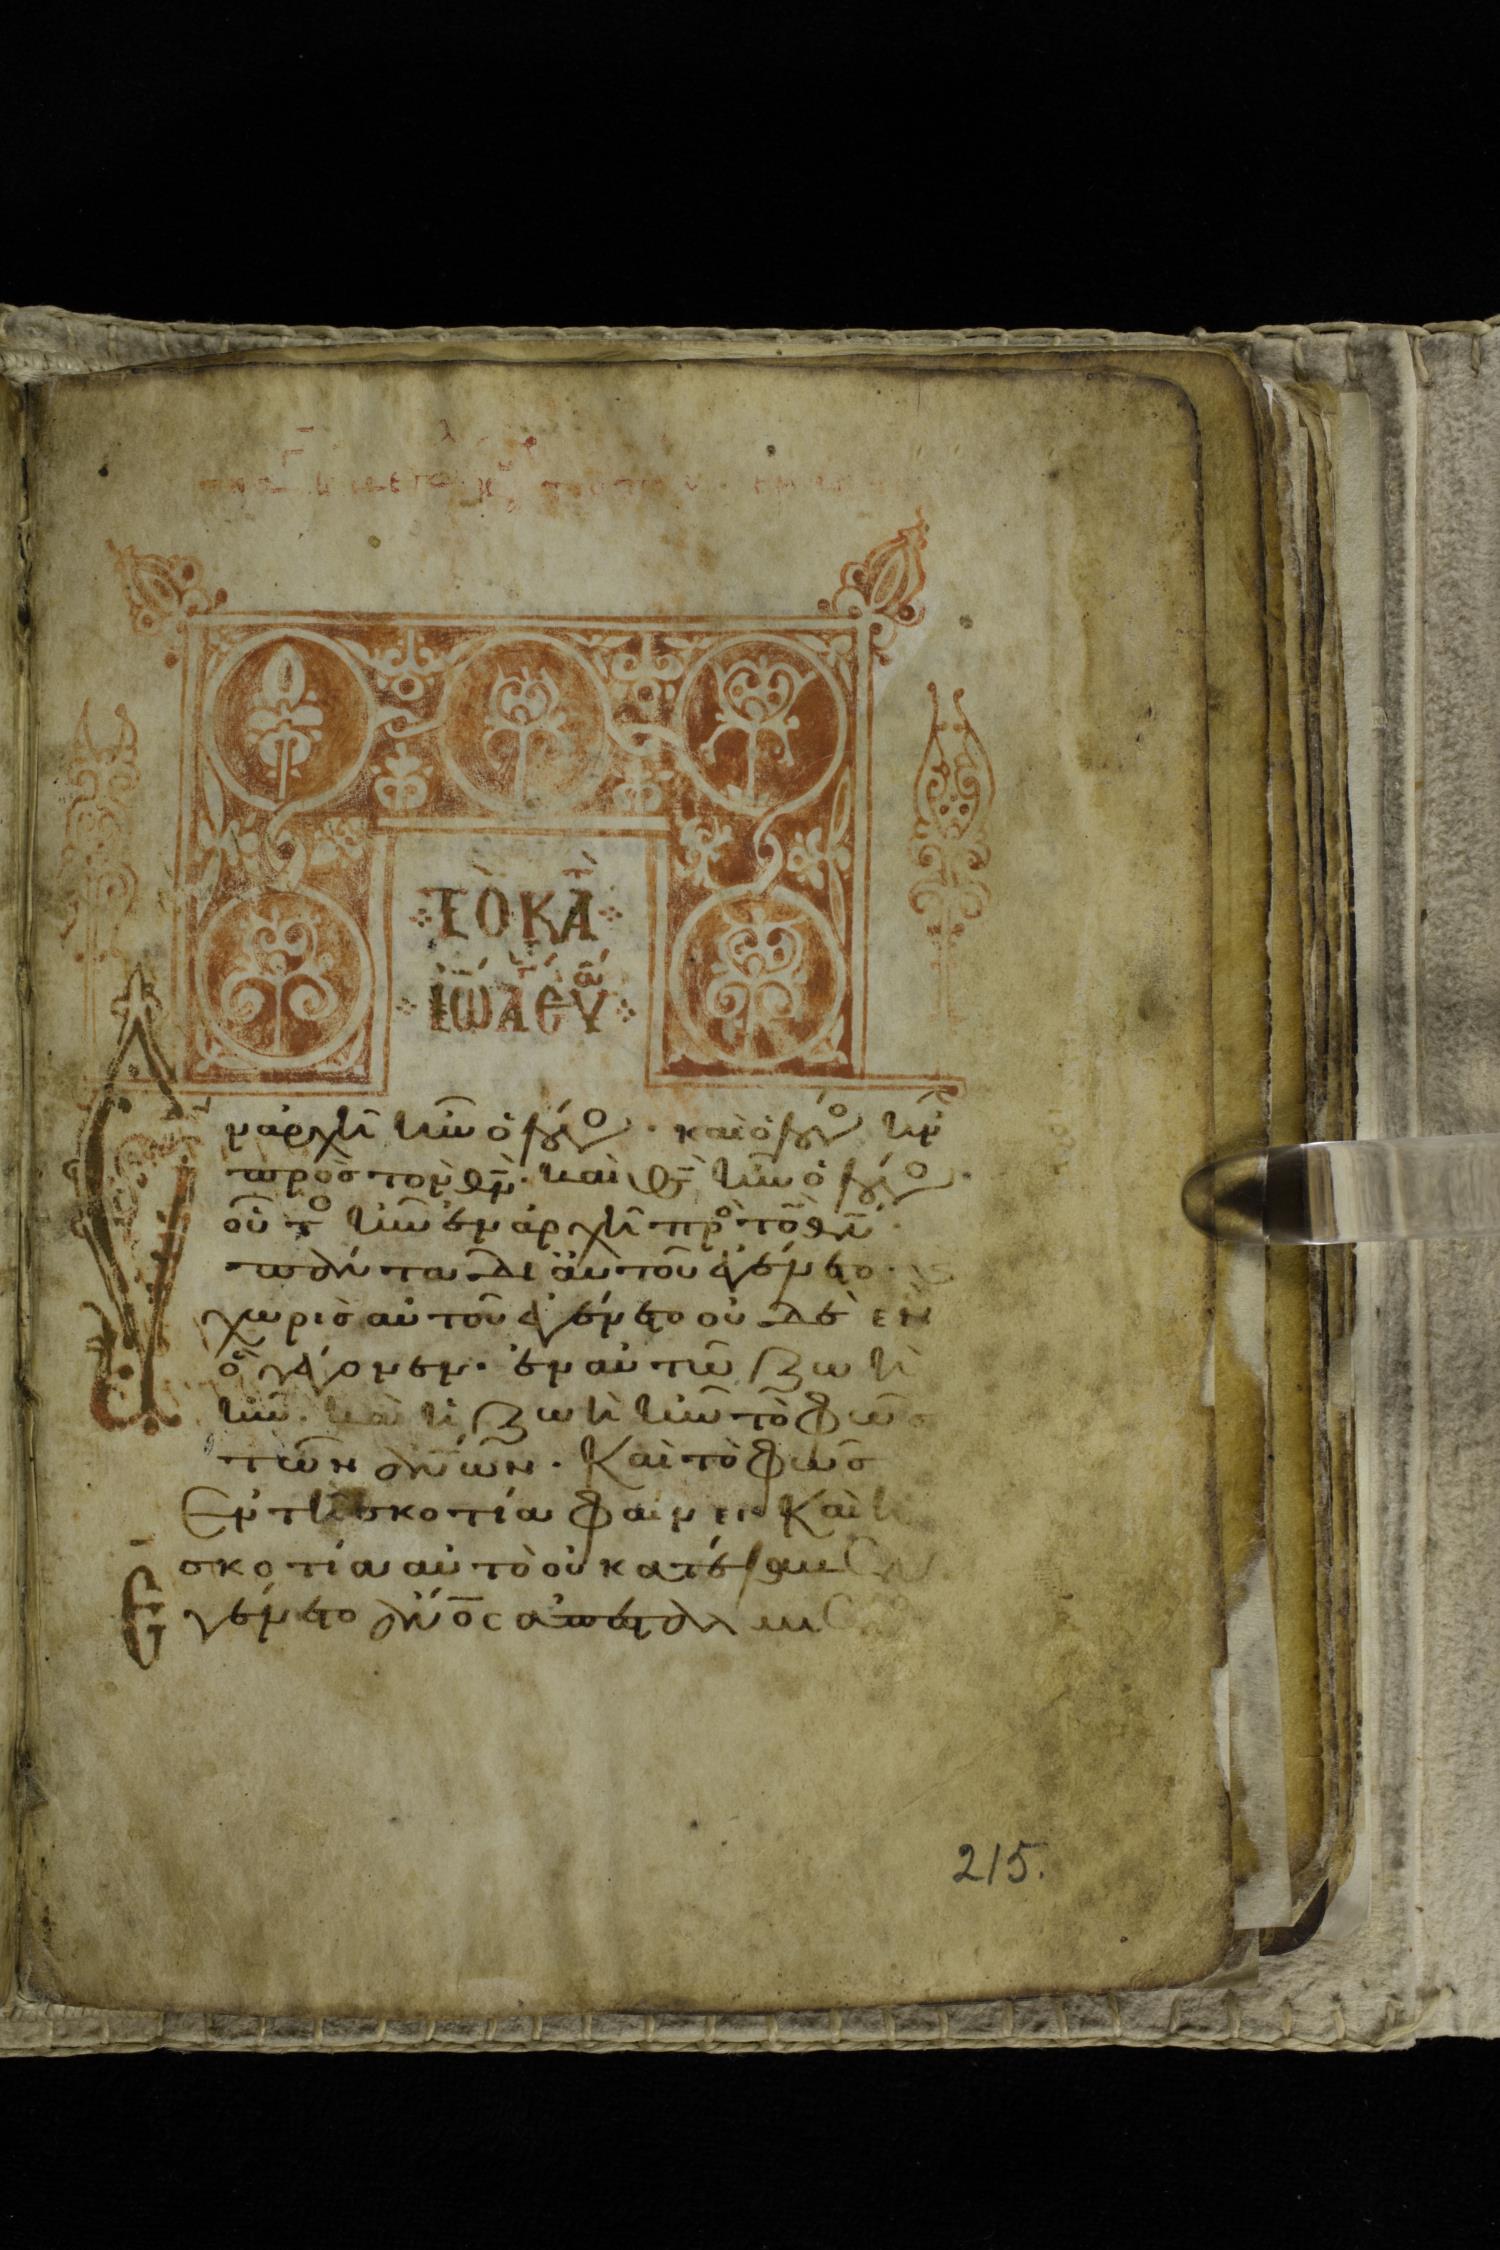 ΤΟ ΚΑΤ
ΙΩΑ ΕΥ
Εν ἀρχῆ ἦν ὁ λόγο · καὶ ὁ λόγο ἦν
πρὸς τὸν θν · καὶ θς ἦν ὁ λόγο ·
οὗτο ἦν ἐν ἀρχῆ προ τὸ θν ·
πάντα δι αὐτοῦ ἐγένετο ·
χωρὶς αὐτοῦ ἐγένετο οὐδὲ ἐν
ὃ γέγονεν · ἐν αὐτῶ ζωὴ
ἦν · καὶ ἡ ζωὴ ἦν τὸ φῶς
τῶν ἀνων · Καὶ τὸ φῶς
Ἐν τῆ σκοτία φαίνει Καὶ ἡ
σκοτία αὐτὸ οὐ κατέλα
Εγένετο ἀνος ἀπεσταλ
215.